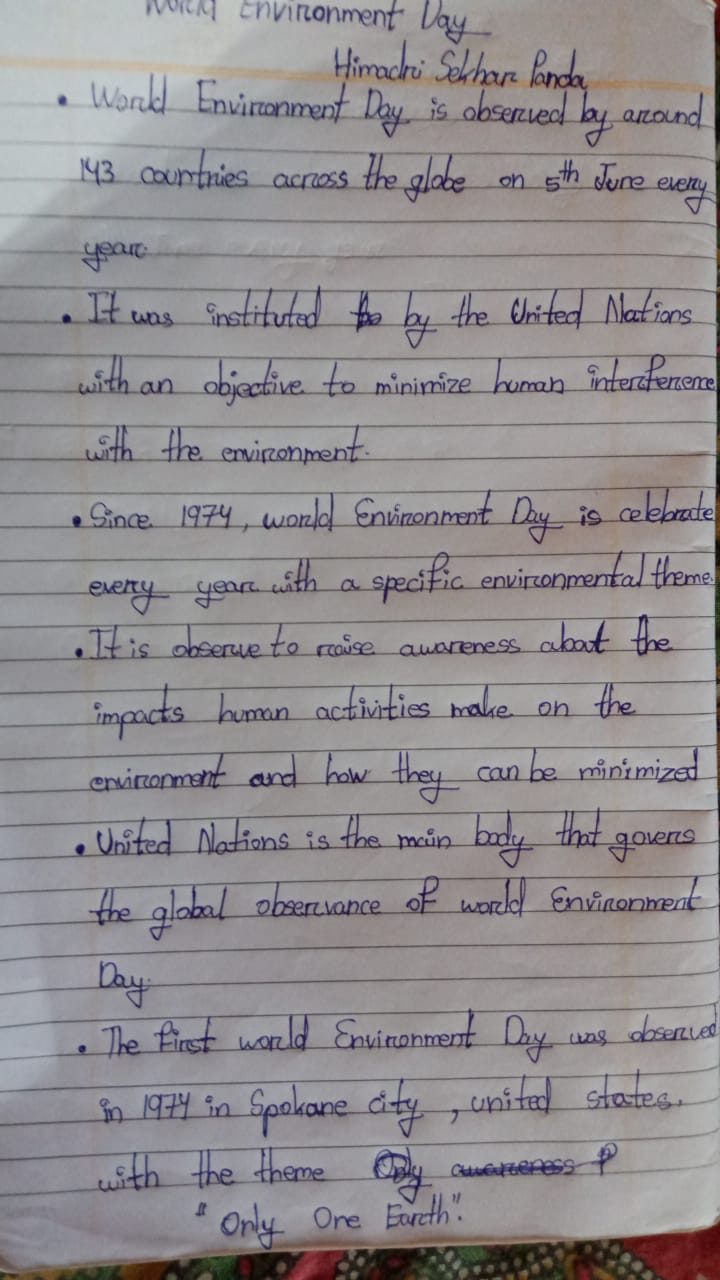 World Environment Day
Himadri Sekhar Panda
• World Environment Day is observed by around
143 countries across the globe on 5th June every
year.
• It was instituted to by the United Nations
with an objective to minimize human interference
with the environment.
• Since 1974, world Environment Day is celebrate
every year with a specific environmental theme.
• It is observe to raise awareness about the
impacts human activities make on the
environment and how they can be minimized
• United Nations is the main body that govers
the global observance of world Environment
Day.
• The first world Environment Day was observed
in 1974 in Spokane city, united states.
with the theme Only awareness
"Only One Earth".